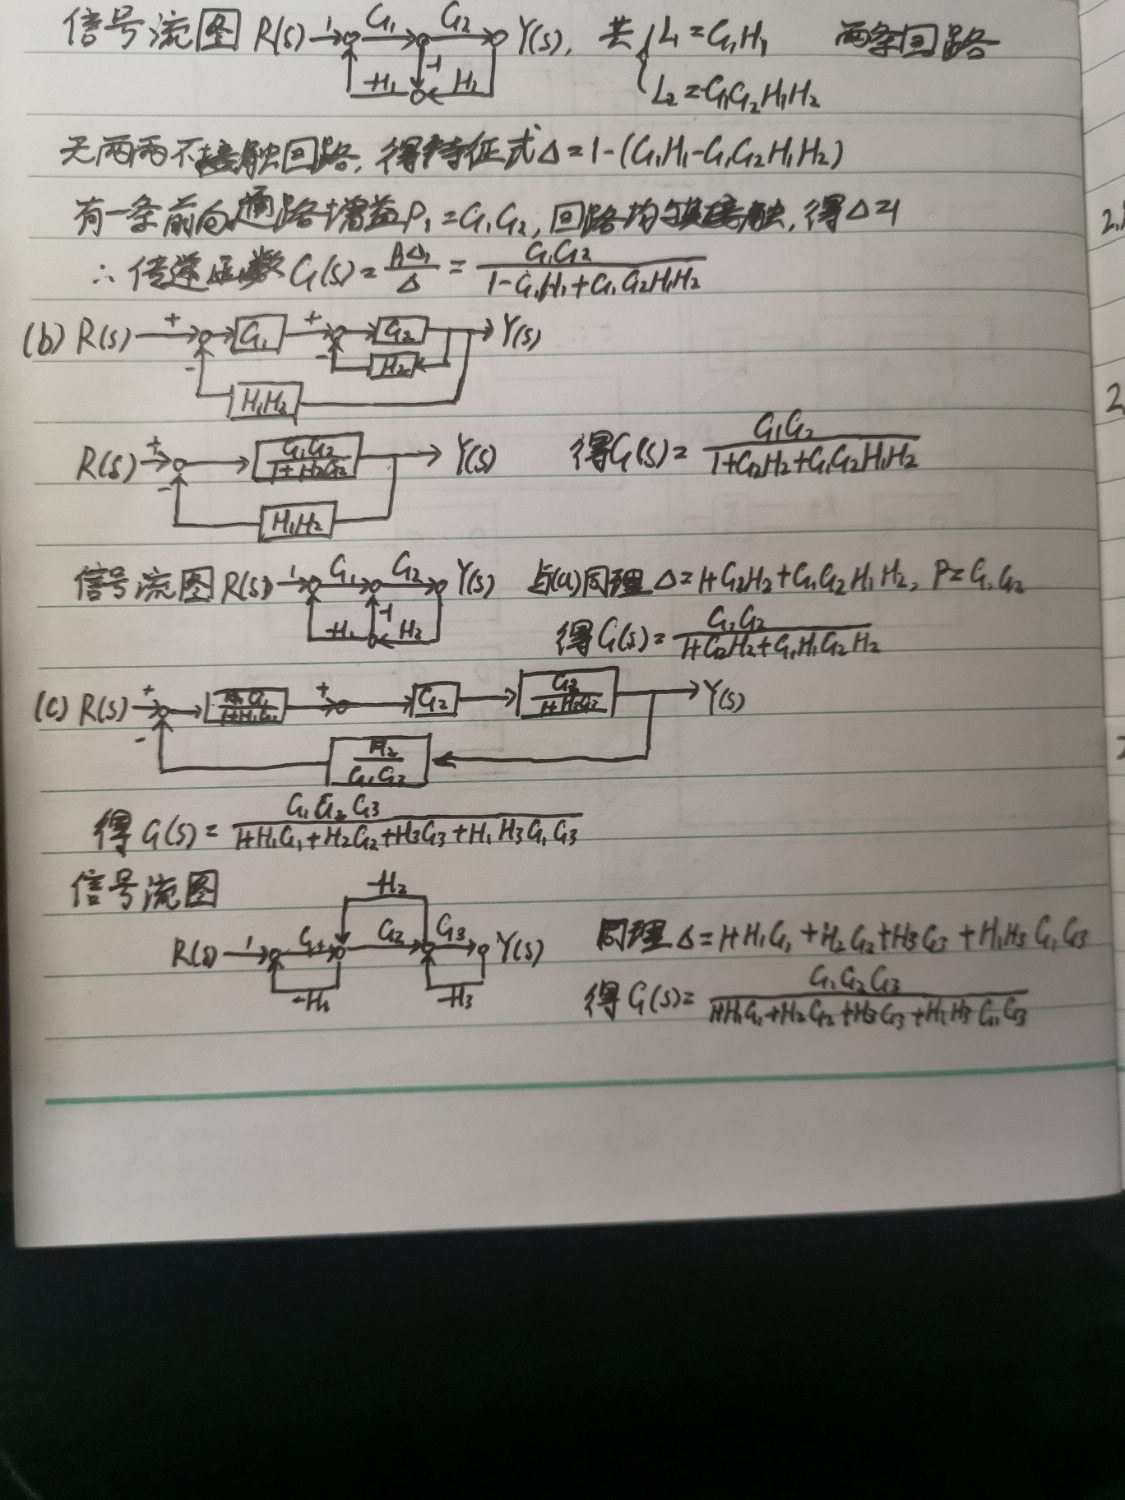 信号流图 R(s) 1 G₁ G₂ Y(s), 共 L₁=G₁H₁ 两条回路
-H₁ -1 H₂ L₂=-G₁G₂H₁H₂
无两两不接触回路, 得特征式Δ=1-(G₁H₁-G₁G₂H₁H₂)
有一条前向通路增益P₁=G₁G₂, 回路均与其接触, 得Δ=1
∴传递函数G(s)=P₁Δ₁/Δ=G₁G₂/(1-G₁H₁+G₁G₂H₁H₂)
(b) R(s) + G₁ + G₂ Y(s)
- - H₂
H₁H₂
R(s) + G₁G₂/(1+H₂G₂) Y(s) 得G(s)=G₁G₂/(1+G₂H₂+G₁G₂H₁H₂)
- H₁H₂
信号流图 R(s) 1 G₁ G₂ Y(s) 与(a)同理 Δ=1+G₂H₂+G₁G₂H₁H₂, P=G₁G₂
-H₁ -1 H₂ 得G(s)=G₁G₂/(1+G₂H₂+G₁H₁G₂H₂)
(c) R(s) + G₁/(1+H₁G₁) + G₂ Y(s)
- H₂/(G₁G₃)
得G(s)=G₁G₂G₃/(1+H₁G₁+H₂G₂+H₃G₃+H₁H₃G₁G₃)
信号流图 -H₂
R(s) 1 G₁ G₂ G₃ Y(s) 同理Δ=1+H₁G₁+H₂G₂+H₃G₃+H₁H₃G₁G₃
-H₁ -H₃ 得G(s)=G₁G₂G₃/(1+H₁G₁+H₂G₂+H₃G₃+H₁H₃G₁G₃)